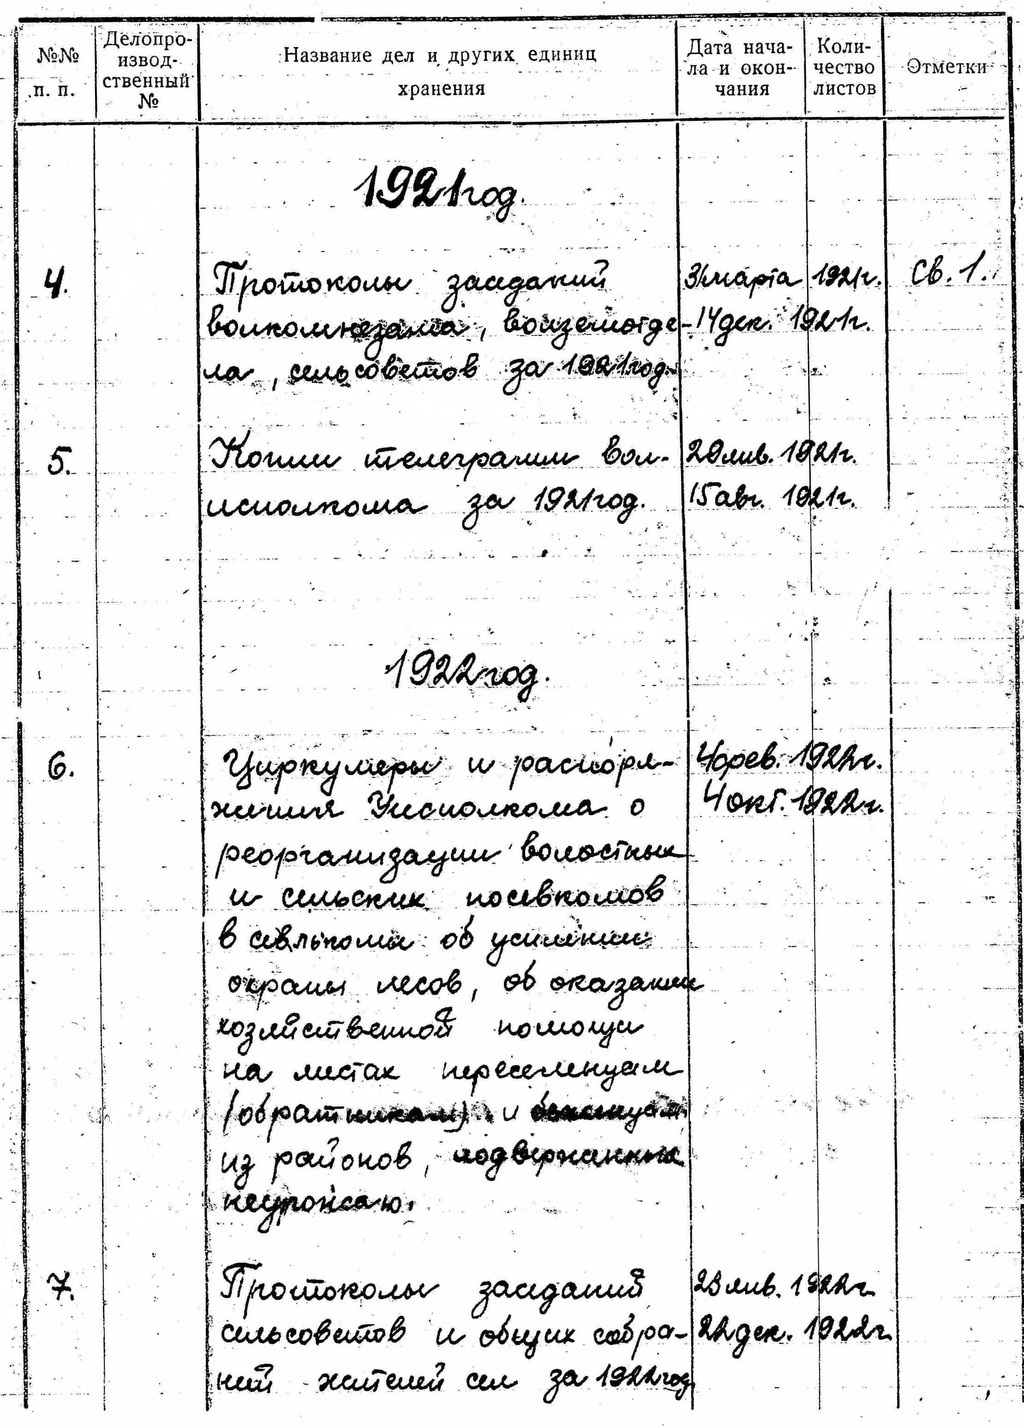 №№ п. п.
Делопро-
извод-
ственный
№
Название дел и других единиц
хранения
Дата нача-
ла и окон-
чания
Коли-
чество
листов
Отметки
1921 год.
4. Протоколы заседаний 31 марта 1921г. Св. 1.
волкомнезама, волземотде- 14 дек. 1921г.
ла, сельсоветов за 1921 год.
5. Копии телеграмм вол- 20 янв. 1921г.
исполкома за 1921 год. 15 авг. 1921г.
1922 год.
6. Циркуляры и распоря- 4 фев. 1922г.
жения Уисполкома о 4 окт. 1922г.
реорганизации волостных
и сельских посевкомов
в селькомы об усилении
охраны лесов, об оказании
хозяйственной помощи
на местах переселенцам
(обратникам) и беженцам
из районов, подверженных
неурожаю.
7. Протоколы заседаний 23 янв. 1922г.
сельсоветов и общих собра- 22 дек. 1922г.
ний жителей сел за 1922 год